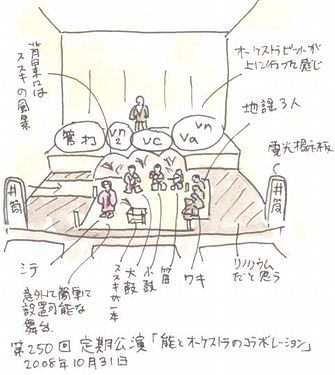 背景には
ススキの風景
オーケストラピットが
上に行った感じ
地謡3人
電光掲示板
管打
vn
2
vc
va
vn
井筒
井筒
シテ
意外にも簡単に
設置可能な
舞台
ススキが一本
大鼓
小鼓
笛
ワキ
リノリウム
だと思う
第250回 定期公演「能とオーケストラのコラボレーション」
2008年10月31日